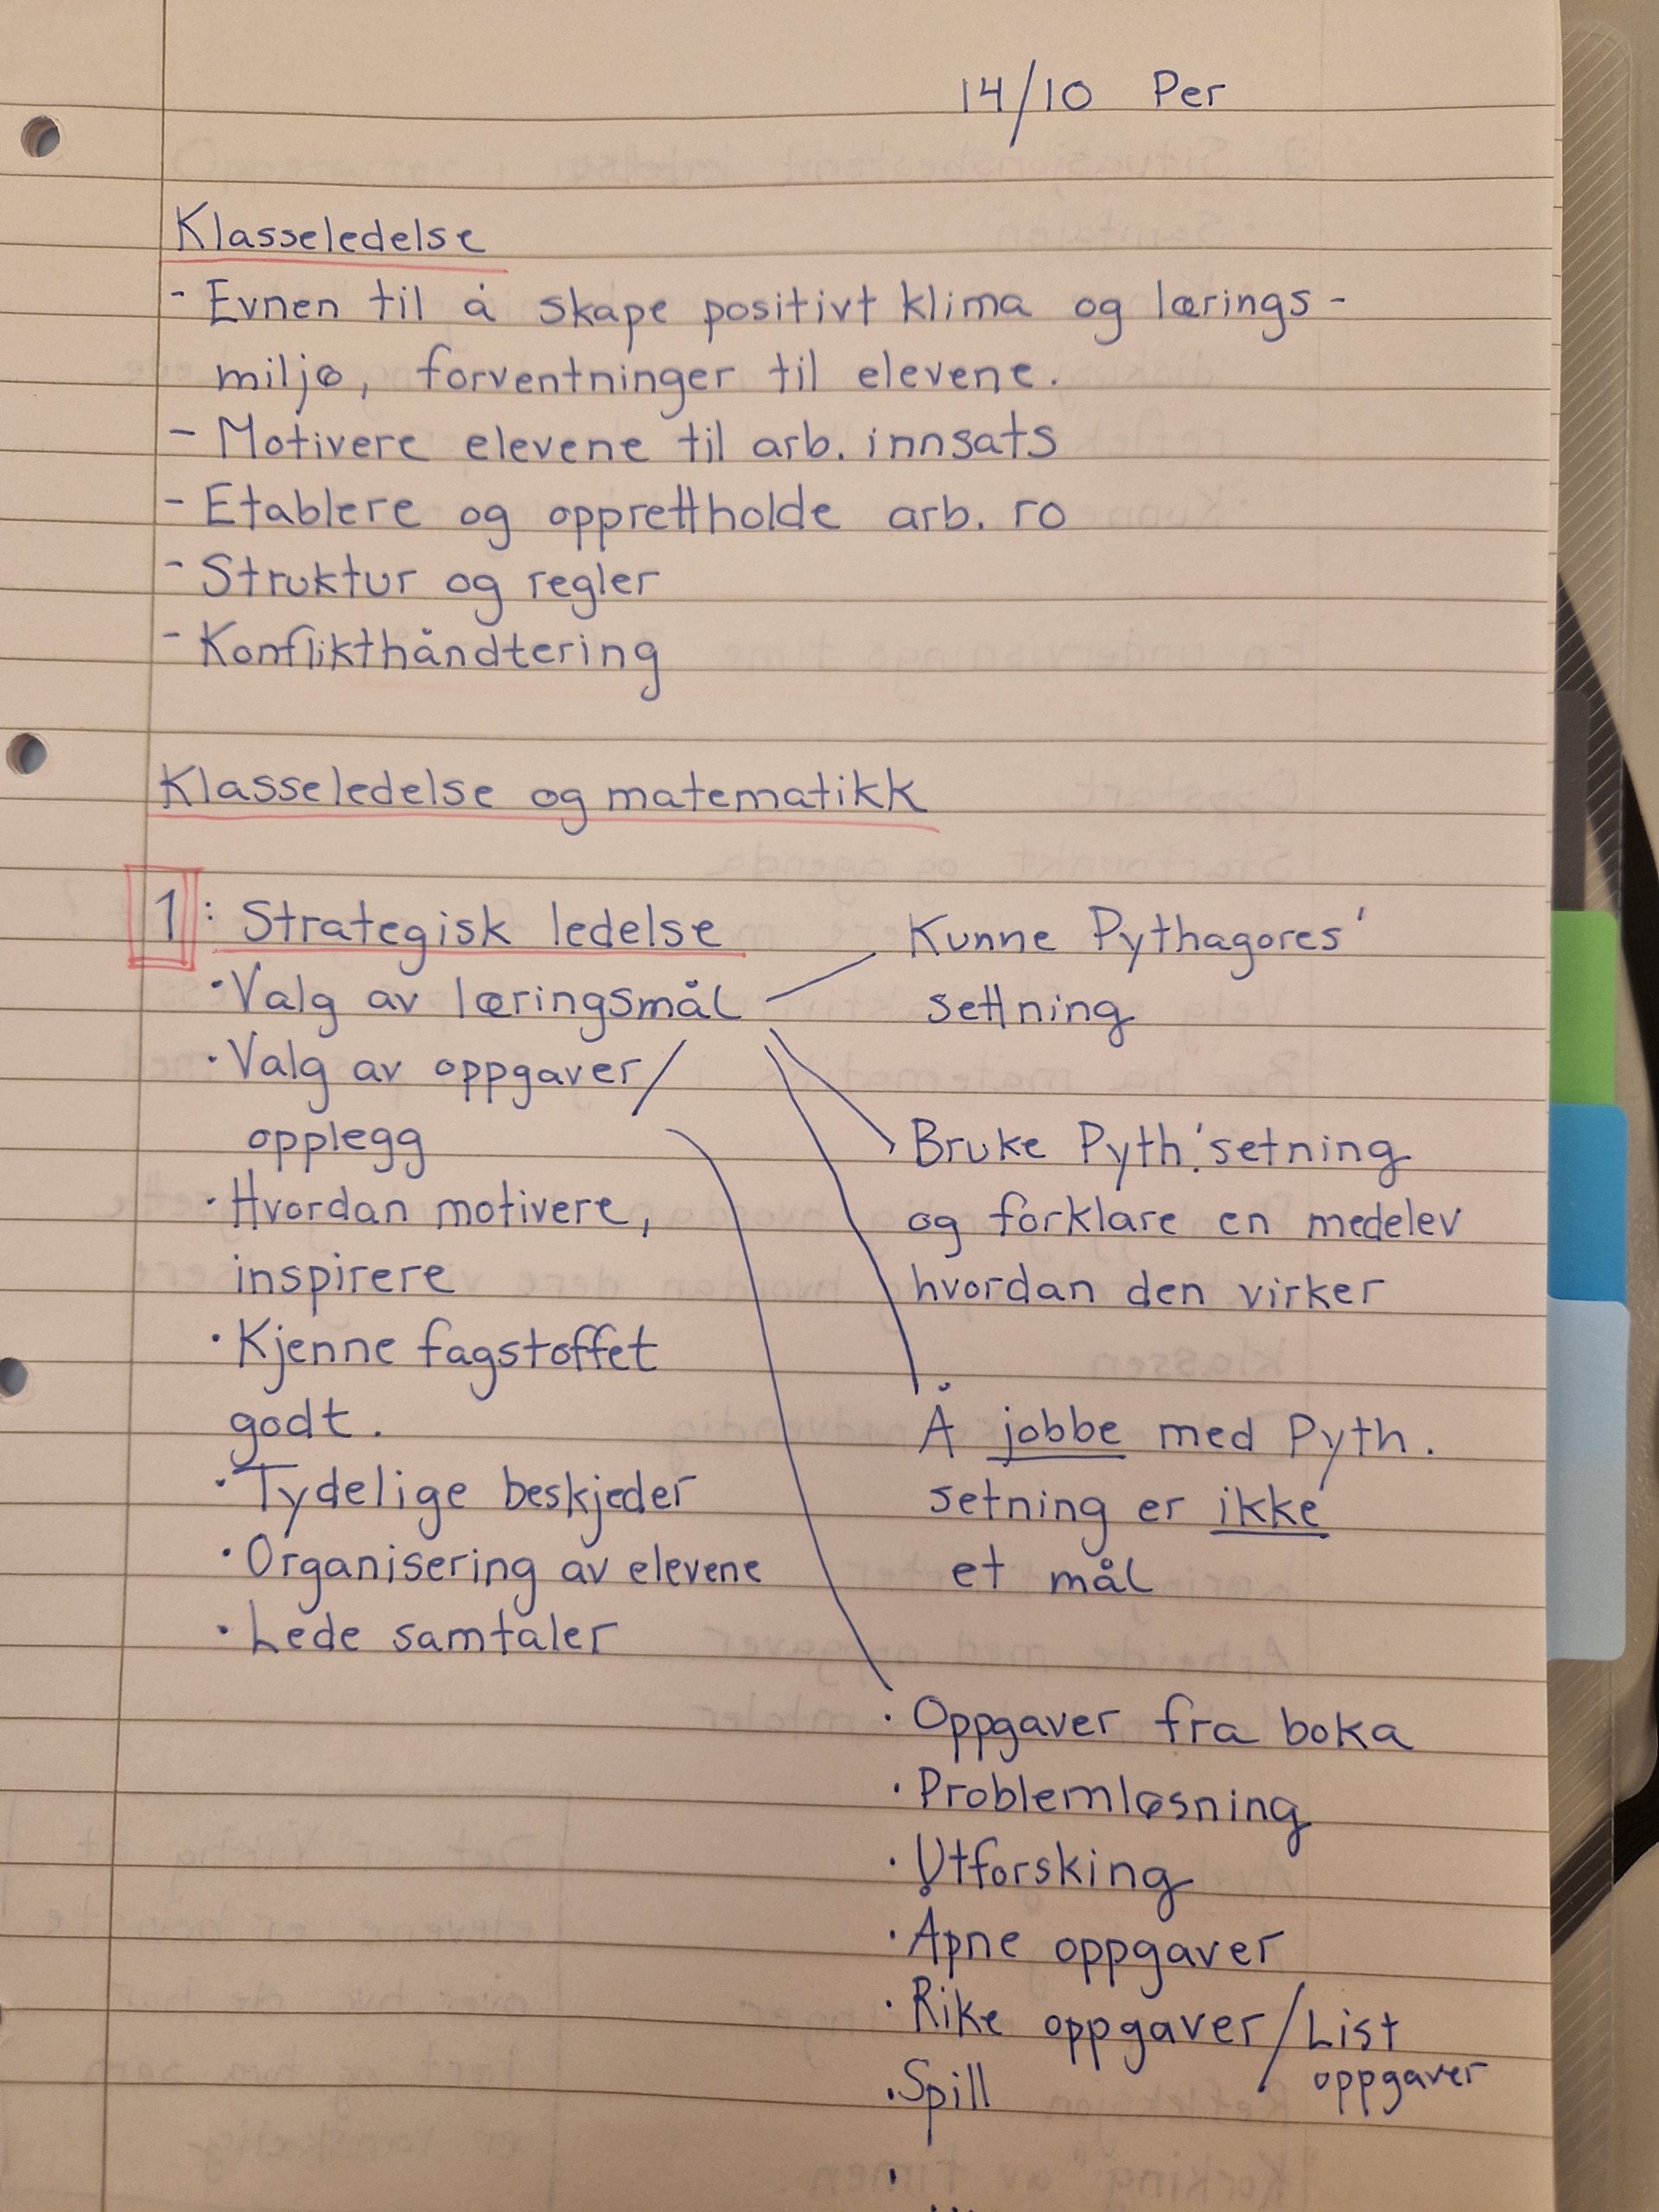 14/10 Per
Klasseledelse
- Evnen til å skape positivt klima og lærings-
miljø, forventninger til elevene.
- Motivere elevene til arb. innsats
- Etablere og opprettholde arb. ro
- Struktur og regler
- Konflikthåndtering
Klasseledelse og matematikk
1: Strategisk ledelse
· Valg av læringsmål
· Valg av oppgaver/
opplegg
· Hvordan motivere,
inspirere
· Kjenne fagstoffet
godt.
· Tydelige beskjeder
· Organisering av elevene
· Lede samtaler
Kunne Pythagores'
settning
Bruke Pyth.' setning
og forklare en medelev
hvordan den virker
Å jobbe med Pyth.
setning er ikke
et mål
· Oppgaver fra boka
· Problemløsning
· Utforsking
· Åpne oppgaver
· Rike oppgaver / List
oppgaver
· Spill
·